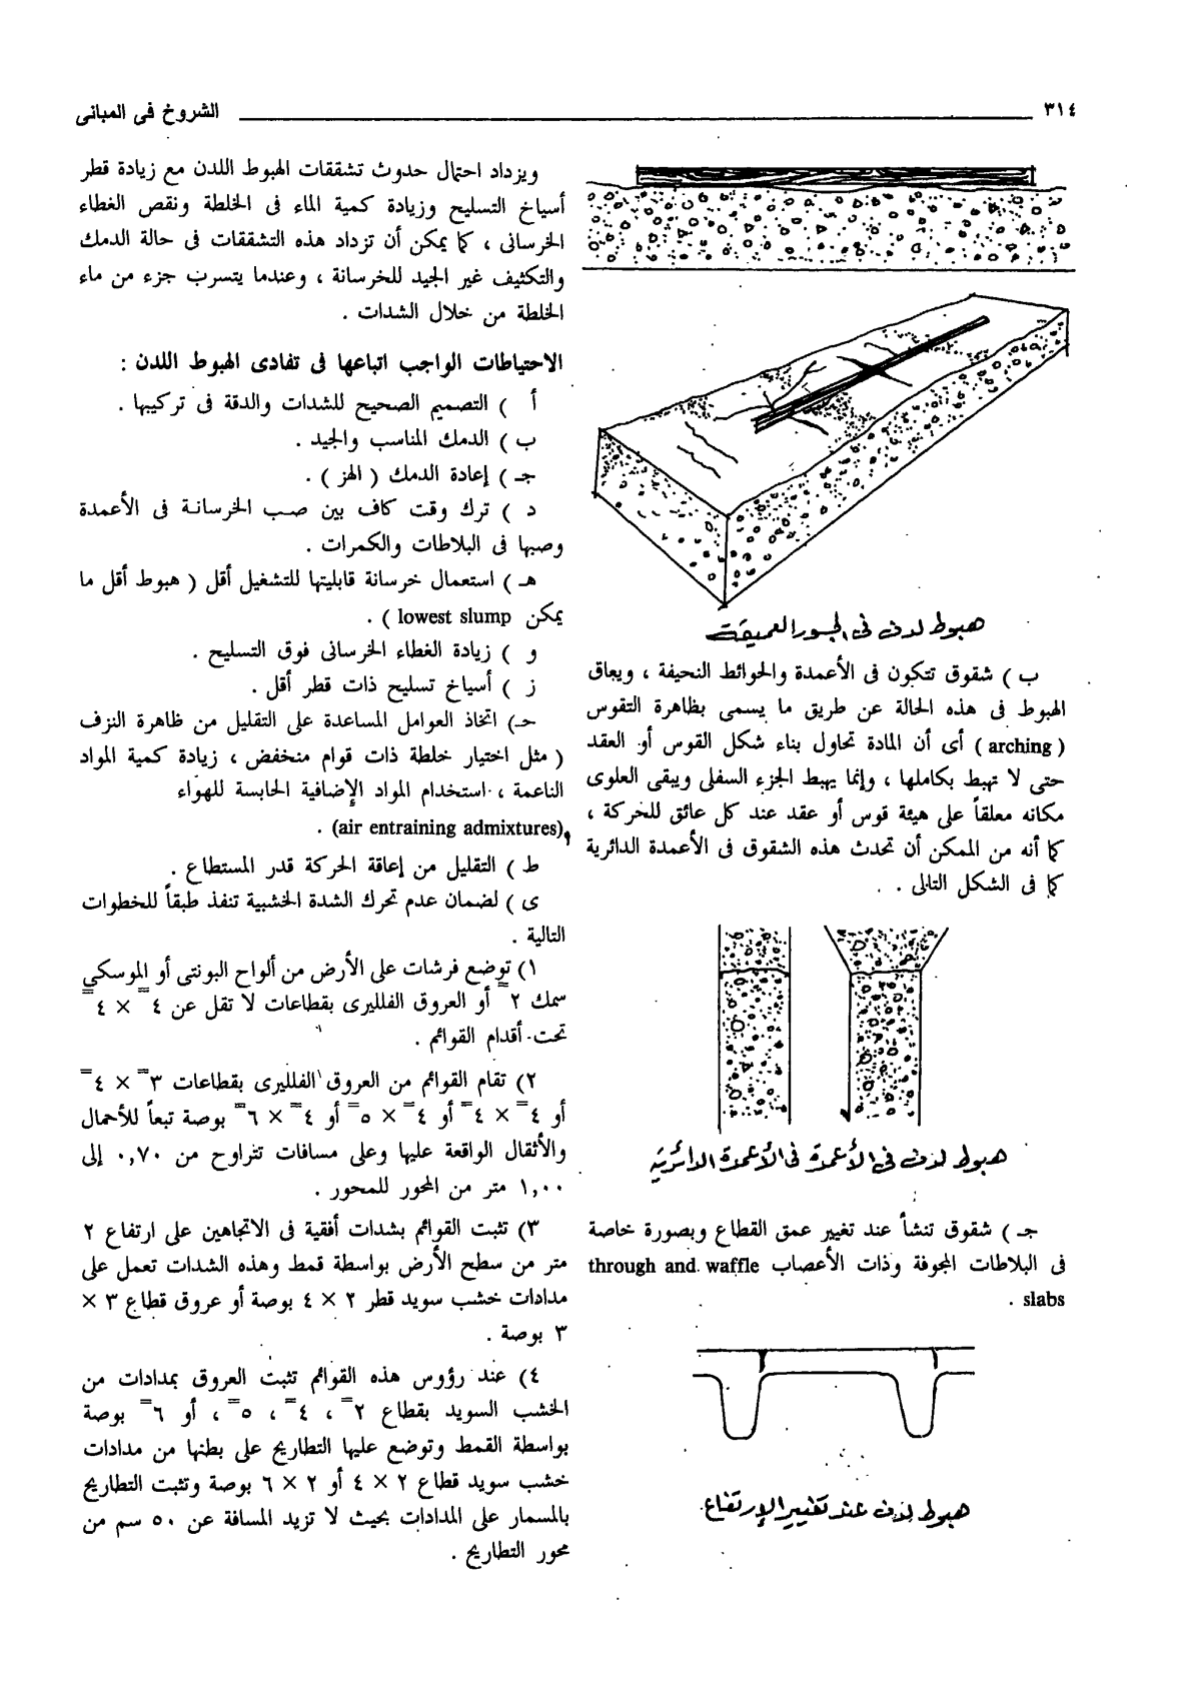 ٣١٤ الشروخ فى المبانى
هبوط لدن فى الجسور العميقة
ب ) شقوق تتكون فى الأعمدة والحوائط النحيفة ، ويعاق
الهبوط فى هذه الحالة عن طريق ما يسمى بظاهرة التقوس
( arching ) أى أن المادة تحاول بناء شكل القوس أو العقد
حتى لا تهبط بكاملها ، وإنما يهبط الجزء السفلى ويبقى العلوى
مكانه معلقاً على هيئة قوس أو عقد عند كل عائق للحركة ،
كما أنه من الممكن أن تحدث هذه الشقوق فى الأعمدة الدائرية
كما فى الشكل التالى .
هبوط لدن فى الأعمدة فى الأعمدة الدائرية
جـ ) شقوق تنشأ عند تغيير عمق القطاع وبصورة خاصة
فى البلاطات المجوفة وذات الأعصاب through and waffle
slabs .
هبوط لدن عند تغيير الإرتفاع
ويزداد احتمال حدوث تشققات الهبوط اللدن مع زيادة قطر
أسياخ التسليح وزيادة كمية الماء فى الخلطة ونقص الغطاء
الخرسانى ، كما يمكن أن تزداد هذه التشققات فى حالة الدمك
والتكثيف غير الجيد للخرسانة ، وعندما يتسرب جزء من ماء
الخلطة من خلال الشدات .
الاحتياطات الواجب اتباعها فى تفادى الهبوط اللدن :
أ ) التصميم الصحيح للشدات والدقة فى تركيبها .
ب ) الدمك المناسب والجيد .
جـ ) إعادة الدمك ( الهز ) .
د ) ترك وقت كاف بين صب الخرسانة فى الأعمدة
وصبها فى البلاطات والكمرات .
هـ ) استعمال خرسانة قابليتها للتشغيل أقل ( هبوط أقل ما
يمكن lowest slump ) .
و ) زيادة الغطاء الخرسانى فوق التسليح .
ز ) أسياخ تسليح ذات قطر أقل .
حـ) اتخاذ العوامل المساعدة على التقليل من ظاهرة النزف
( مثل اختيار خلطة ذات قوام منخفض ، زيادة كمية المواد
الناعمة ، استخدام المواد الإضافية الحابسة للهواء
و(air entraining admixtures) .
ط ) التقليل من إعاقة الحركة قدر المستطاع .
ى ) لضمان عدم تحرك الشدة الخشبية تنفذ طبقاً للخطوات
التالية .
١) توضع فرشات على الأرض من ألواح البونتى أو الموسكي
سمك ٢ ً أو العروق الفلليرى بقطاعات لا تقل عن ٤ ً × ٤ ً
تحت أقدام القوائم .
٢) تقام القوائم من العروق الفلليرى بقطاعات ٣ ً × ٤ ً
أو ٤ ً × ٤ ً أو ٤ ً × ٥ ً أو ٤ ً × ٦ ً بوصة تبعاً للأحمال
والأثقال الواقعة عليها وعلى مسافات تتراوح من ٠,٧٠ إلى
١,٠٠ متر من المحور للمحور .
٣) تثبت القوائم بشدات أفقية فى الاتجاهين على ارتفاع ٢
متر من سطح الأرض بواسطة قمط وهذه الشدات تعمل على
مدادات خشب سويد قطر ٢ × ٤ بوصة أو عروق قطاع ٣ ×
٣ بوصة .
٤) عند رؤوس هذه القوائم تثبت العروق بمدادات من
الخشب السويد بقطاع ٢ ً ، ٤ ً ، ٥ ً ، أو ٦ ً بوصة
بواسطة القمط وتوضع عليها التطاريح على بطنها من مدادات
خشب سويد قطاع ٢ × ٤ أو ٢ × ٦ بوصة وتثبت التطاريح
بالمسمار على المدادات بحيث لا تزيد المسافة عن ٥٠ سم من
محور التطاريح .